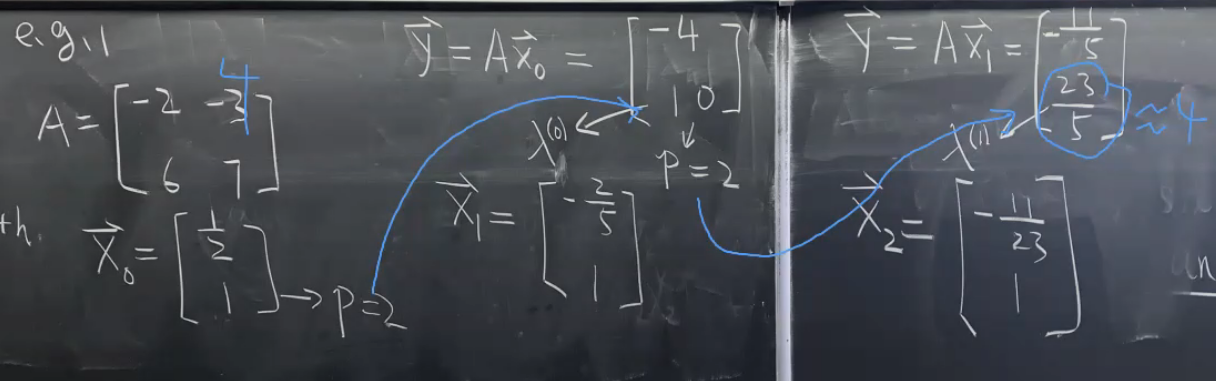 e.g.1
4
A = [ -2 -3 ; 6 7 ]
th.
x⃗₀ = [ 1/2 ; 1 ] → P=2
y⃗ = Ax⃗₀ = [ -4 ; 10 ]
λ⁽⁰⁾
P=2
x⃗₁ = [ -2/5 ; 1 ]
y⃗ = Ax⃗₁ = [ -11/5 ; 23/5 ] ≈ 4
λ⁽¹⁾
x⃗₂ = [ -11/23 ; 1 ]